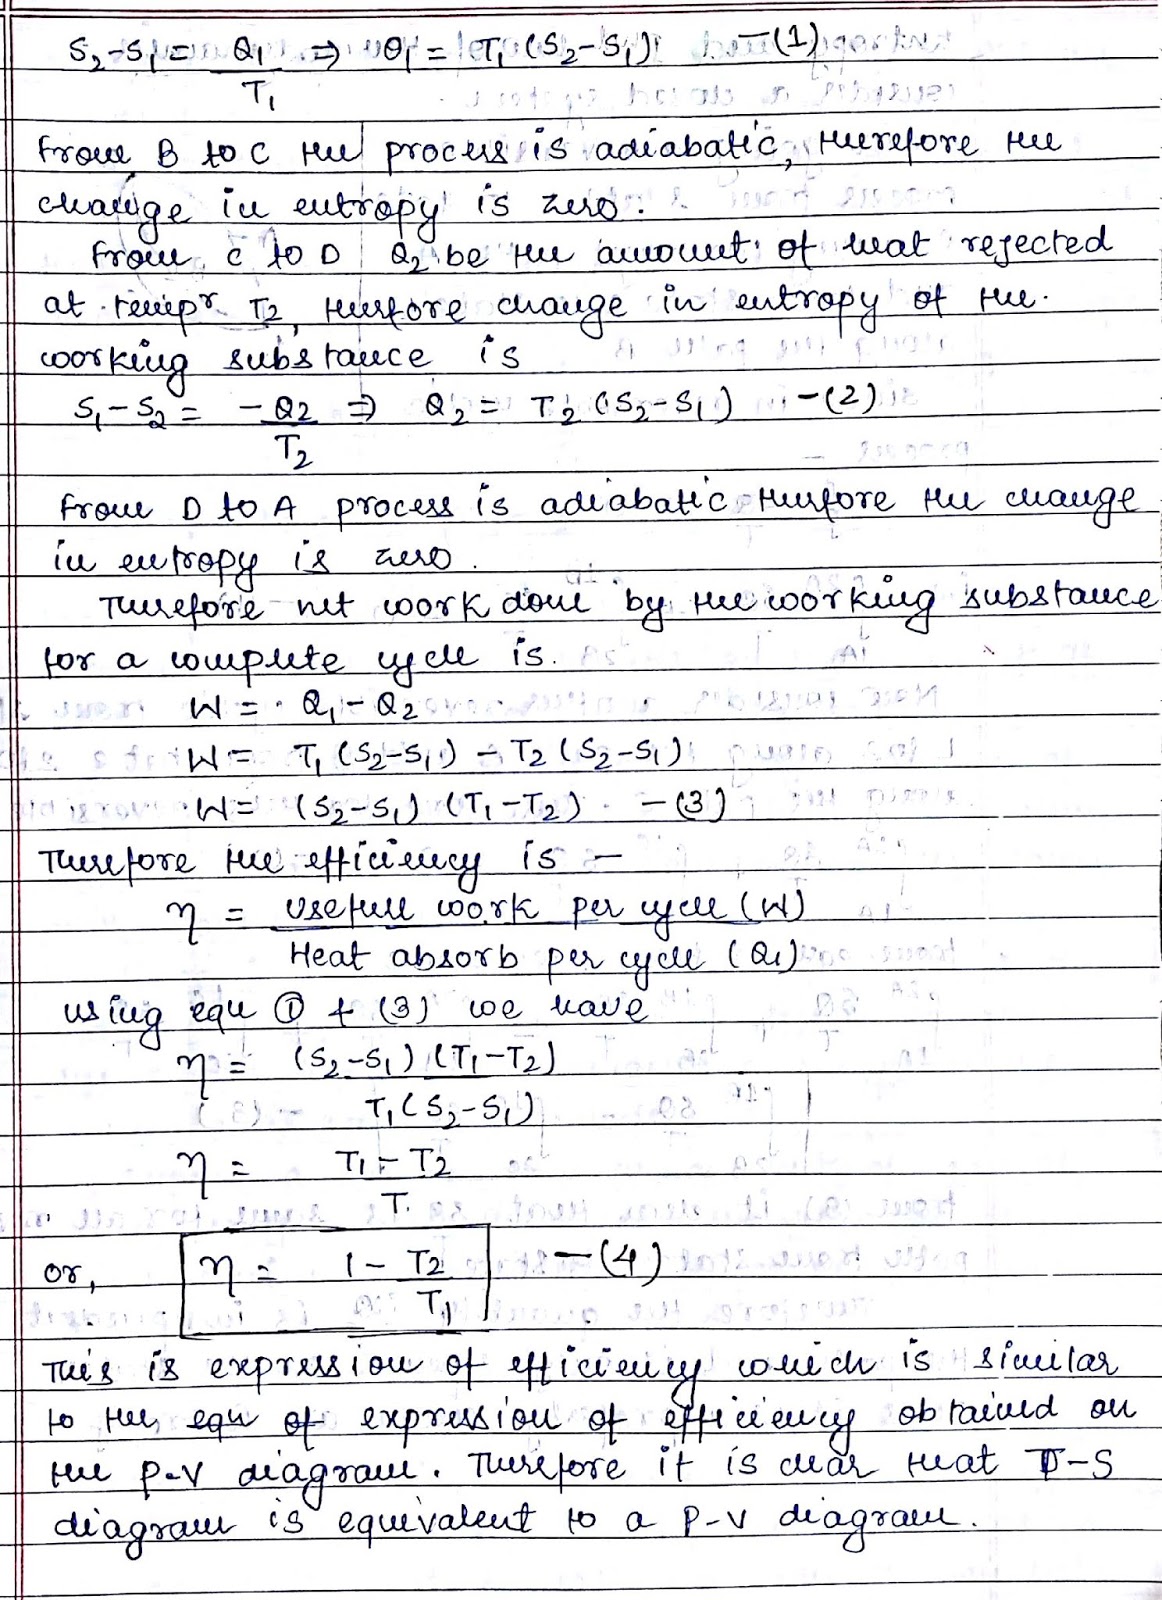 S₂-S₁ = Q₁/T₁ ⇒ Q₁ = T₁ (S₂-S₁) -(1)
From B to C the process is adiabatic, therefore the
change in entropy is zero.
From C to D Q₂ be the amount of heat rejected
at tempr T₂, therfore change in entropy of the
working substance is
S₁-S₂ = -Q₂/T₂ ⇒ Q₂ = T₂ (S₂-S₁) -(2)
From D to A process is adiabatic therfore the change
in entropy is zero.
Therefore net work done by the working substance
for a complete cycle is.
W = Q₁-Q₂
W = T₁ (S₂-S₁) - T₂ (S₂-S₁)
W = (S₂-S₁) (T₁-T₂) -(3)
Therefore the efficiency is -
η = Usefull work per cycle (W)
Heat absorb per cycle (Q₁)
using equ ① + (3) we have
η = (S₂-S₁) (T₁-T₂)
T₁ (S₂-S₁)
η = T₁-T₂
T.
or, η = 1 - T₂/T₁ -(4)
This is expression of efficiency which is similar
to the equ of expression of efficiency obtained on
the P-V diagram. Therefore it is clear that T-S
diagram is equivalent to a P-V diagram.